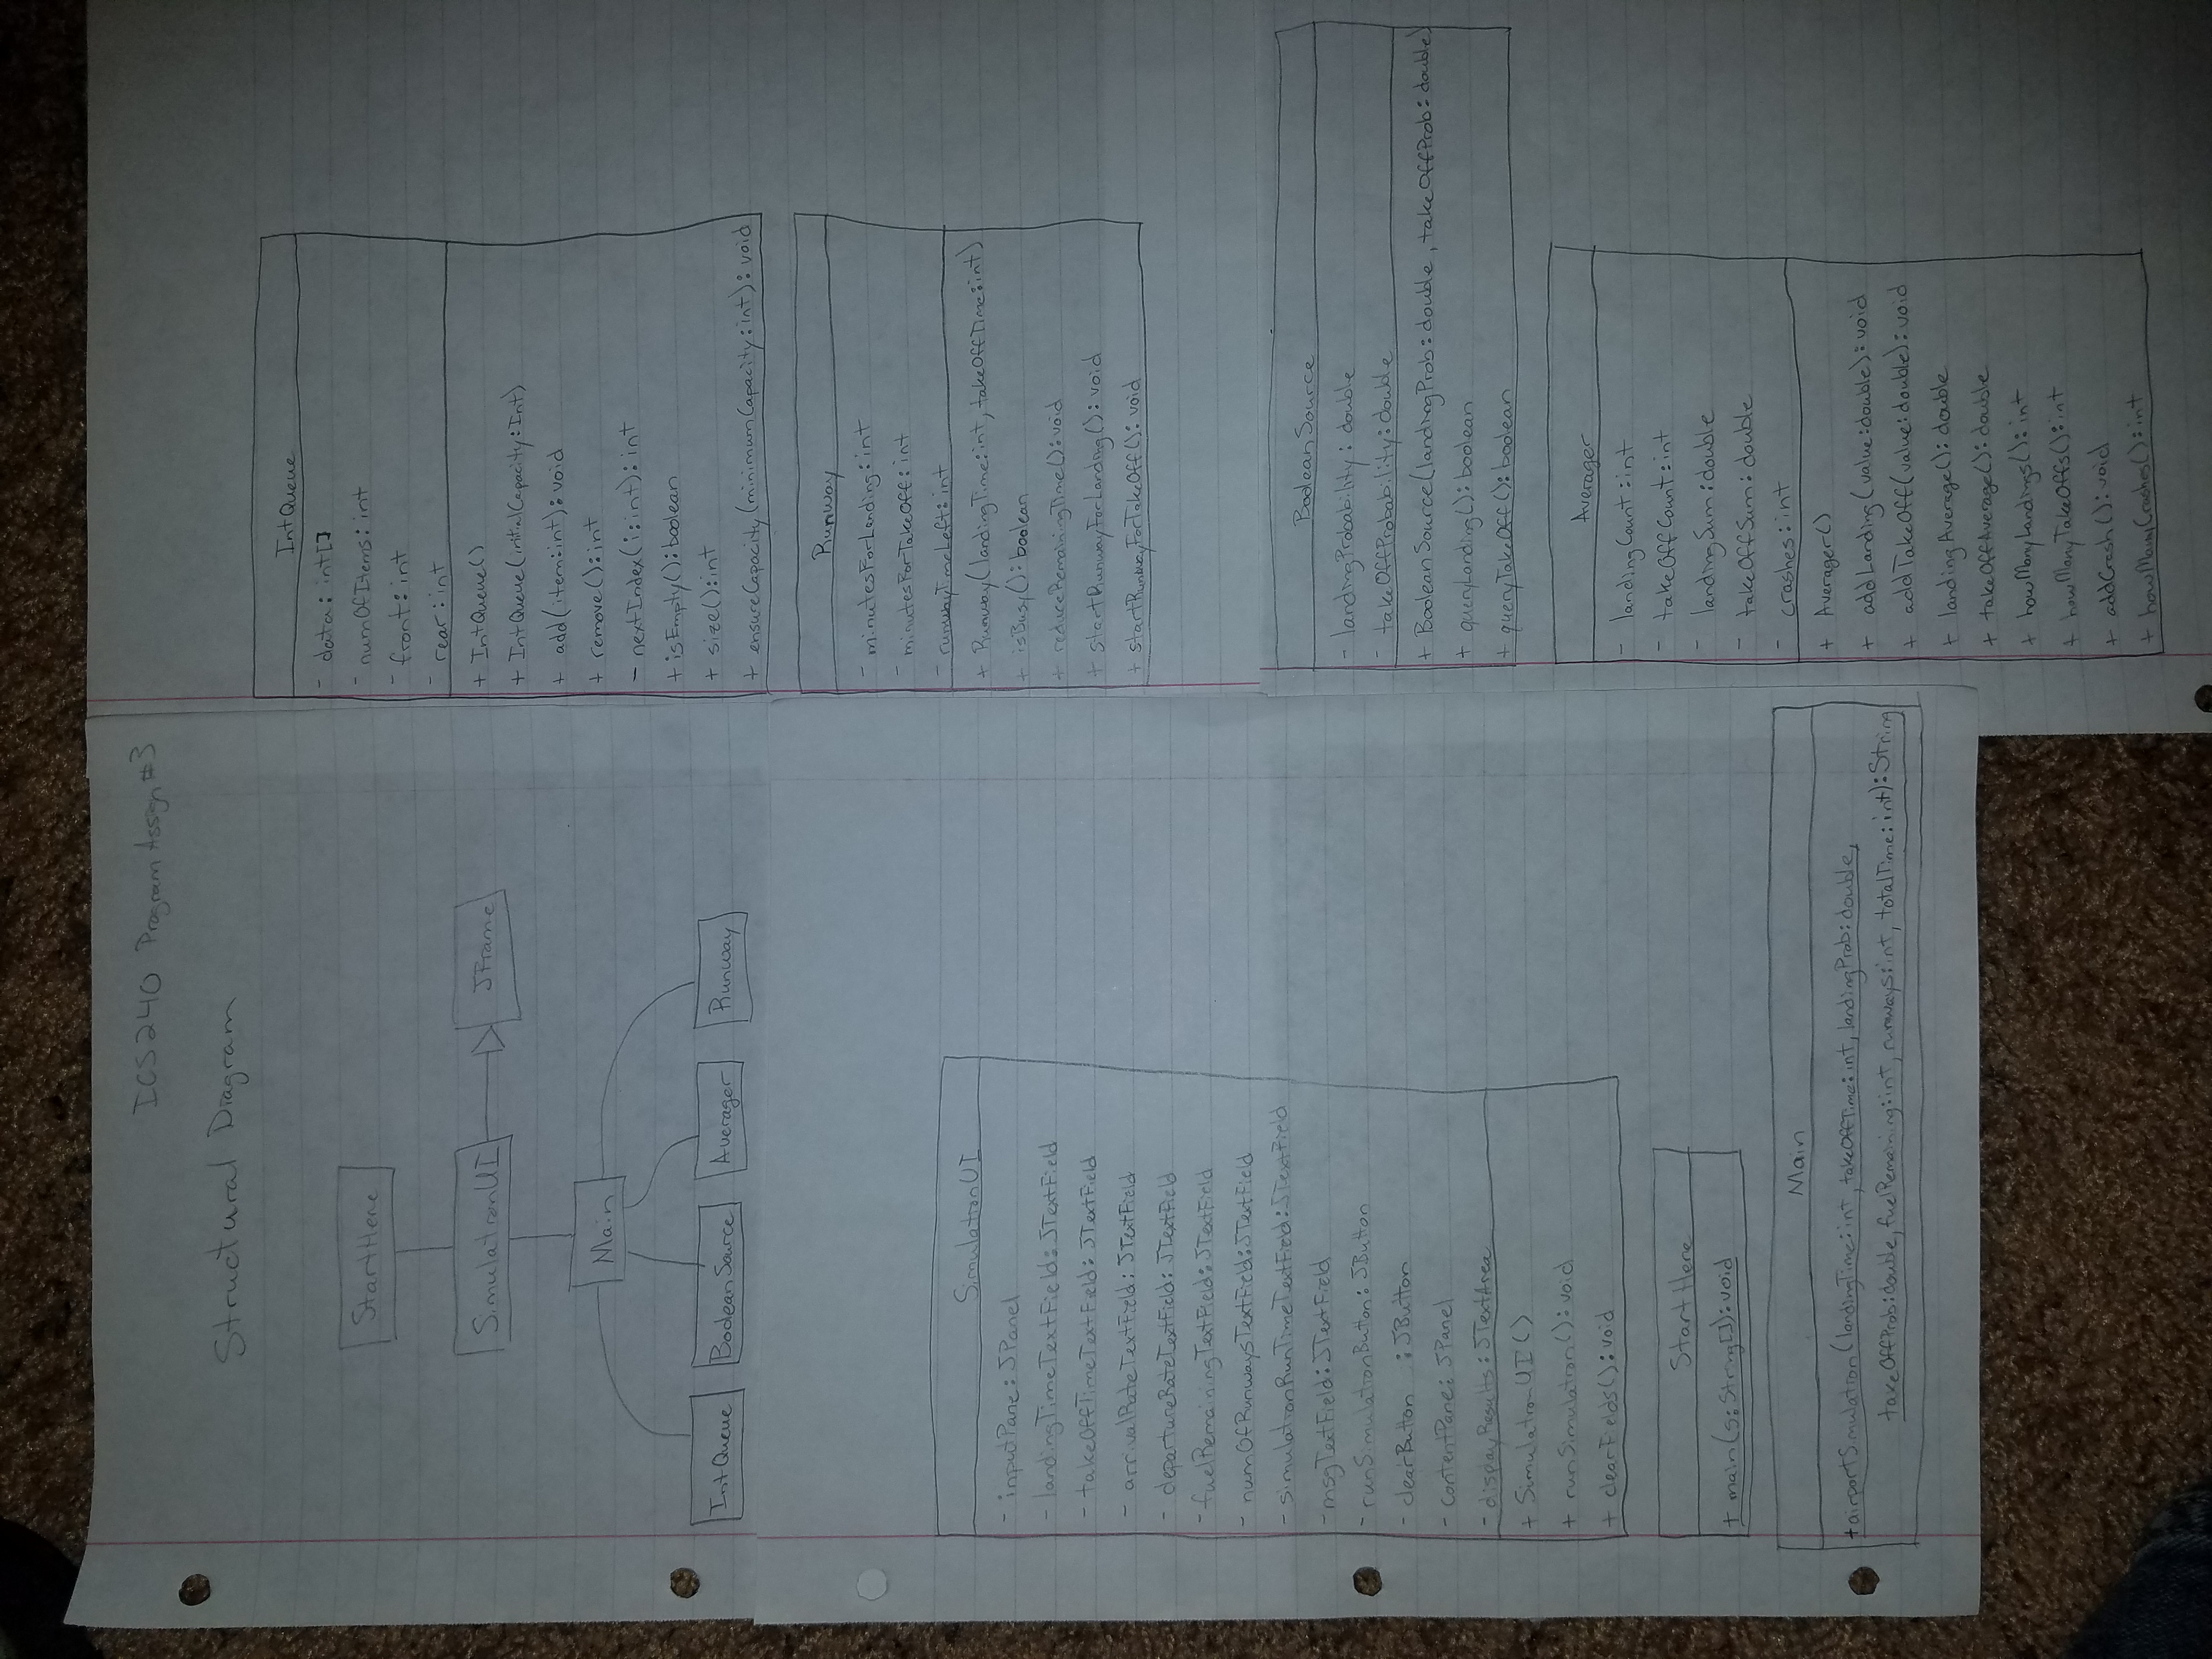 ICS 240 Program Assign #3
Structural Diagram
StartHere
SimulationUI
JFrame
Main
IntQueue
BooleanSource
Averager
Runway
SimulationUI
- inputPane: JPanel
- landingTimeTextField: JTextField
- takeOffTimeTextField: JTextField
- arrivalRateTextField: JTextField
- departureRateTextField: JTextField
- fuelRemainingTextField: JTextField
- numOfRunwaysTextField: JTextField
- simulationRunTimeTextField: JTextField
- msgTextField: JTextField
- runSimulationButton: JButton
- clearButton : JButton
- contentPane: JPanel
- displayResults: JTextArea
+ SimulationUI()
+ runSimulation(): void
+ clearFields(): void
StartHere
+ main(s: String[]): void
Main
+ airportSimulation(landingTime: int, takeOffTime: int, landingProb: double,
takeOffProb: double, fuelRemaining: int, runways: int, totalTime: int): String
IntQueue
- data: int[]
- numOfItems: int
- front: int
- rear: int
+ IntQueue()
+ IntQueue(initialCapacity: Int)
+ add(item: int): void
+ remove(): int
- nextIndex(i: int): int
+ isEmpty(): boolean
+ size(): int
+ ensureCapacity(minimumCapacity: int): void
Runway
- minutesForLanding: int
- minutesForTakeOff: int
- runwayTimeLeft: int
+ Runway(landingTime: int, takeOffTime: int)
+ isBusy(): boolean
+ reduceRemainingTime(): void
+ startRunwayForLanding(): void
+ startRunwayForTakeOff(): void
BooleanSource
- landingProbability: double
- takeOffProbability: double
+ BooleanSource(landingProb: double, takeOffProb: double)
+ queryLanding(): boolean
+ queryTakeOff(): boolean
Averager
- landingCount: int
- takeOffCount: int
- landingSum: double
- takeOffSum: double
- crashes: int
+ Averager()
+ addLanding(value: double): void
+ addTakeOff(value: double): void
+ landingAverage(): double
+ takeOffAverage(): double
+ howManyLandings(): int
+ howManyTakeOffs(): int
+ addCrash(): void
+ howManyCrashes(): int